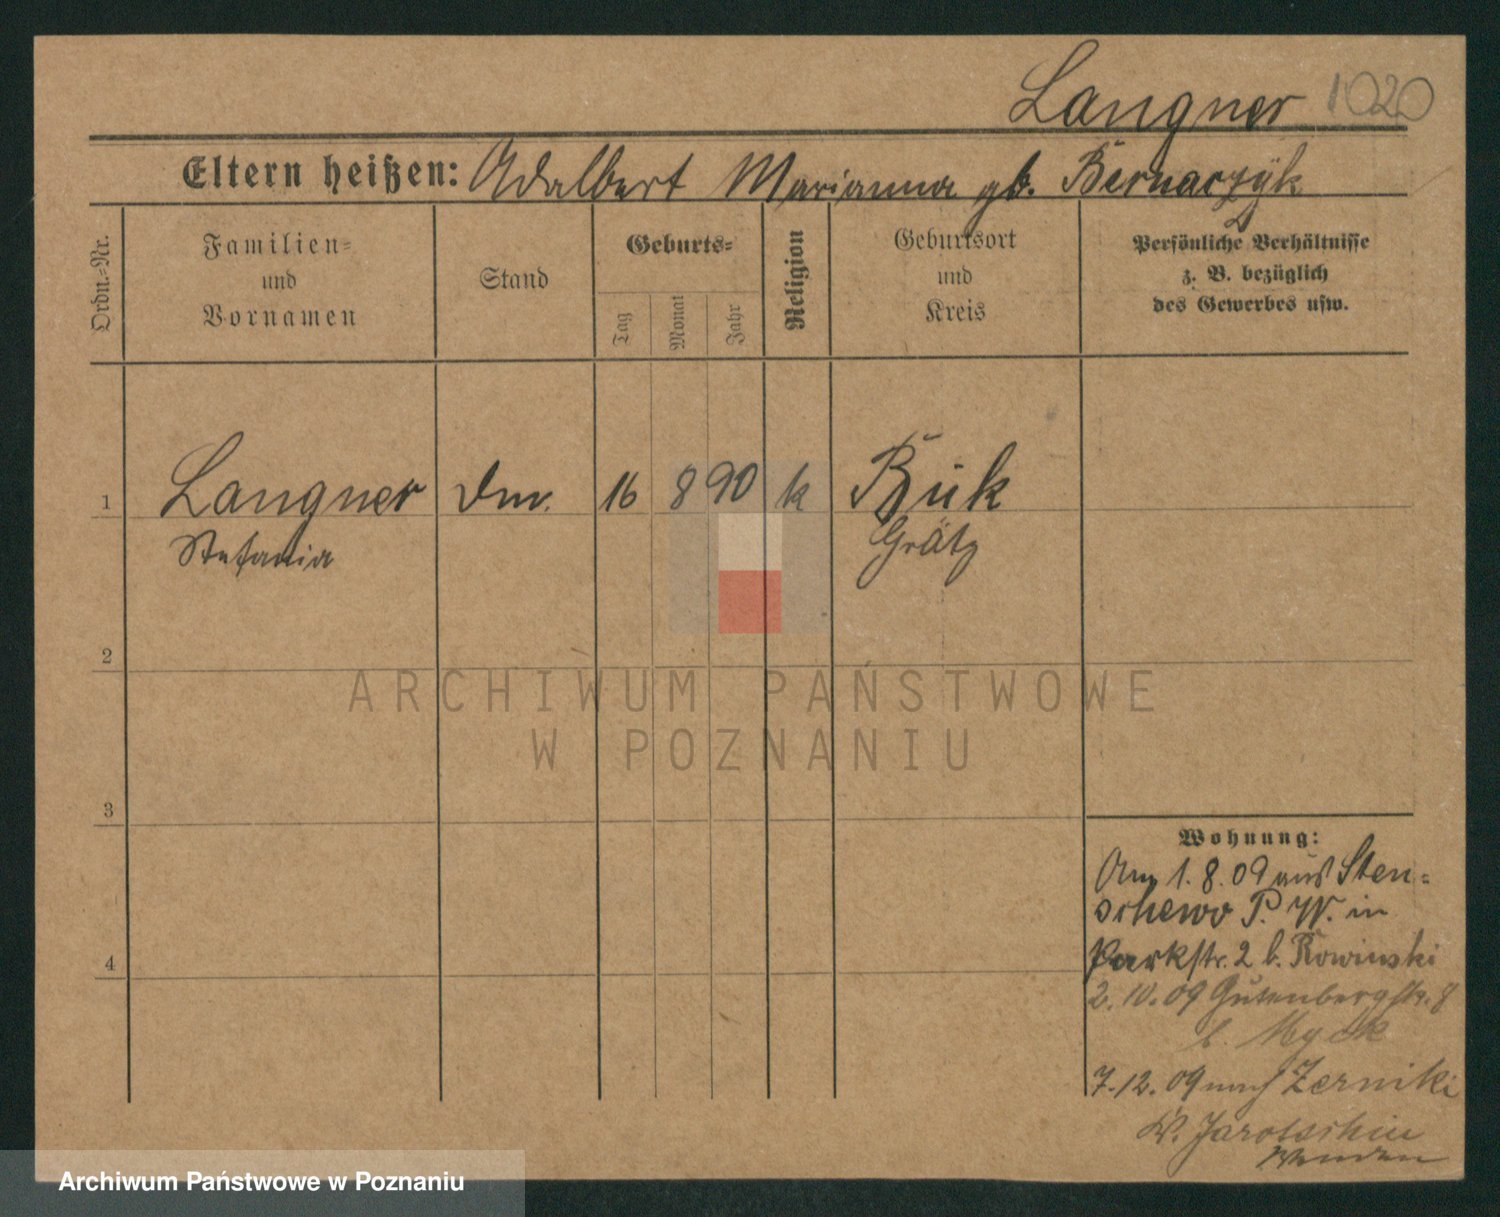 Langner 1020
Eltern heißen: Adalbert Marianna gb. Bernaczyk
Ordn.-Nr.
Familien-
und
Vornamen
Stand
Geburts-
Tag
Monat
Jahr
Religion
Geburtsort
und
Kreis
Persönliche Verhältnisse
z. B. bezüglich
des Gewerbes usw.
1 Langner Dm. 16 8 90 k Buk
Stefania Grätz
2
3
4
Wohnung:
Am 1. 8. 09 aus Sten-
schewo P. W. in
Parkstr. 2 b. Rowinski
2. 10. 09 Gutenbergstr. 8
b. Myck
7. 12. 09 nach Zerniki
Jarotschin
ARCHIWUM PAŃSTWOWE
W POZNANIU
Archiwum Państwowe w Poznaniu